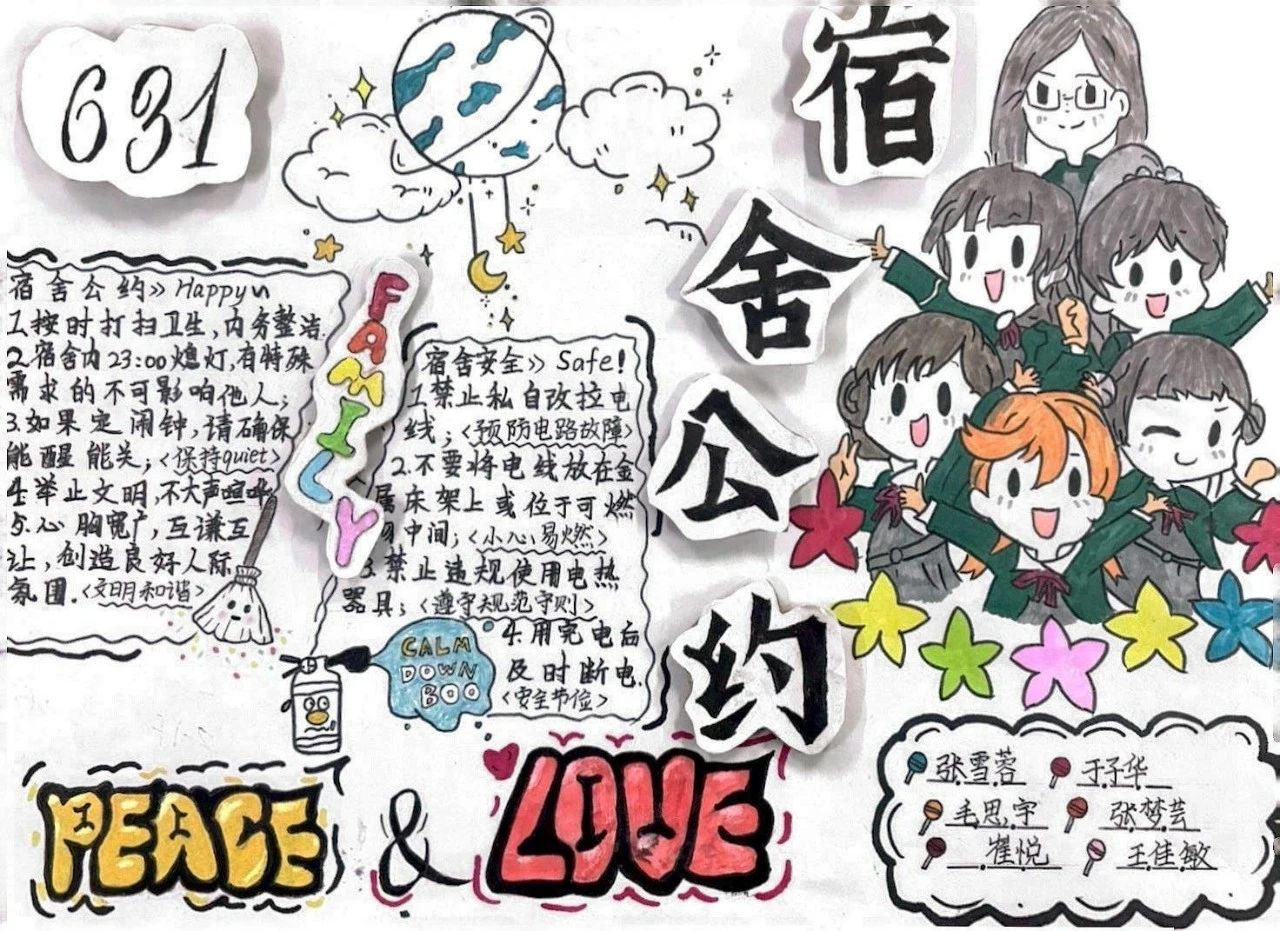 631
宿舍公约
宿舍公约》 Happy
1.按时打扫卫生,内务整洁.
2.宿舍内23:00熄灯,有特殊
需求的不可影响他人;
3.如果定闹钟,请确保
能醒能关;<保持quiet>
4.举止文明,不大声喧哗
5.心胸宽广,互谦互
让,创造良好人际
氛围.<文明和谐>
FAMILY
宿舍安全》 Safe!
1.禁止私自改拉电
线;<预防电路故障>
2.不要将电线放在金
属床架上或位于可燃
中间;<小心易燃>
3.禁止违规使用电热
器具;<遵守规范守则>
4.用完电后
及时断电.
<安全节俭>
CALM
DOWN
BOO
PEACE & LOVE
张雪蓉 于子华
毛思宇 张梦芸
崔悦 王佳敏